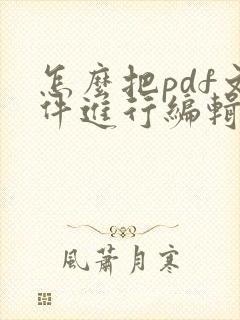 怎麼把pdf文
件進行編輯
風蕭月寒